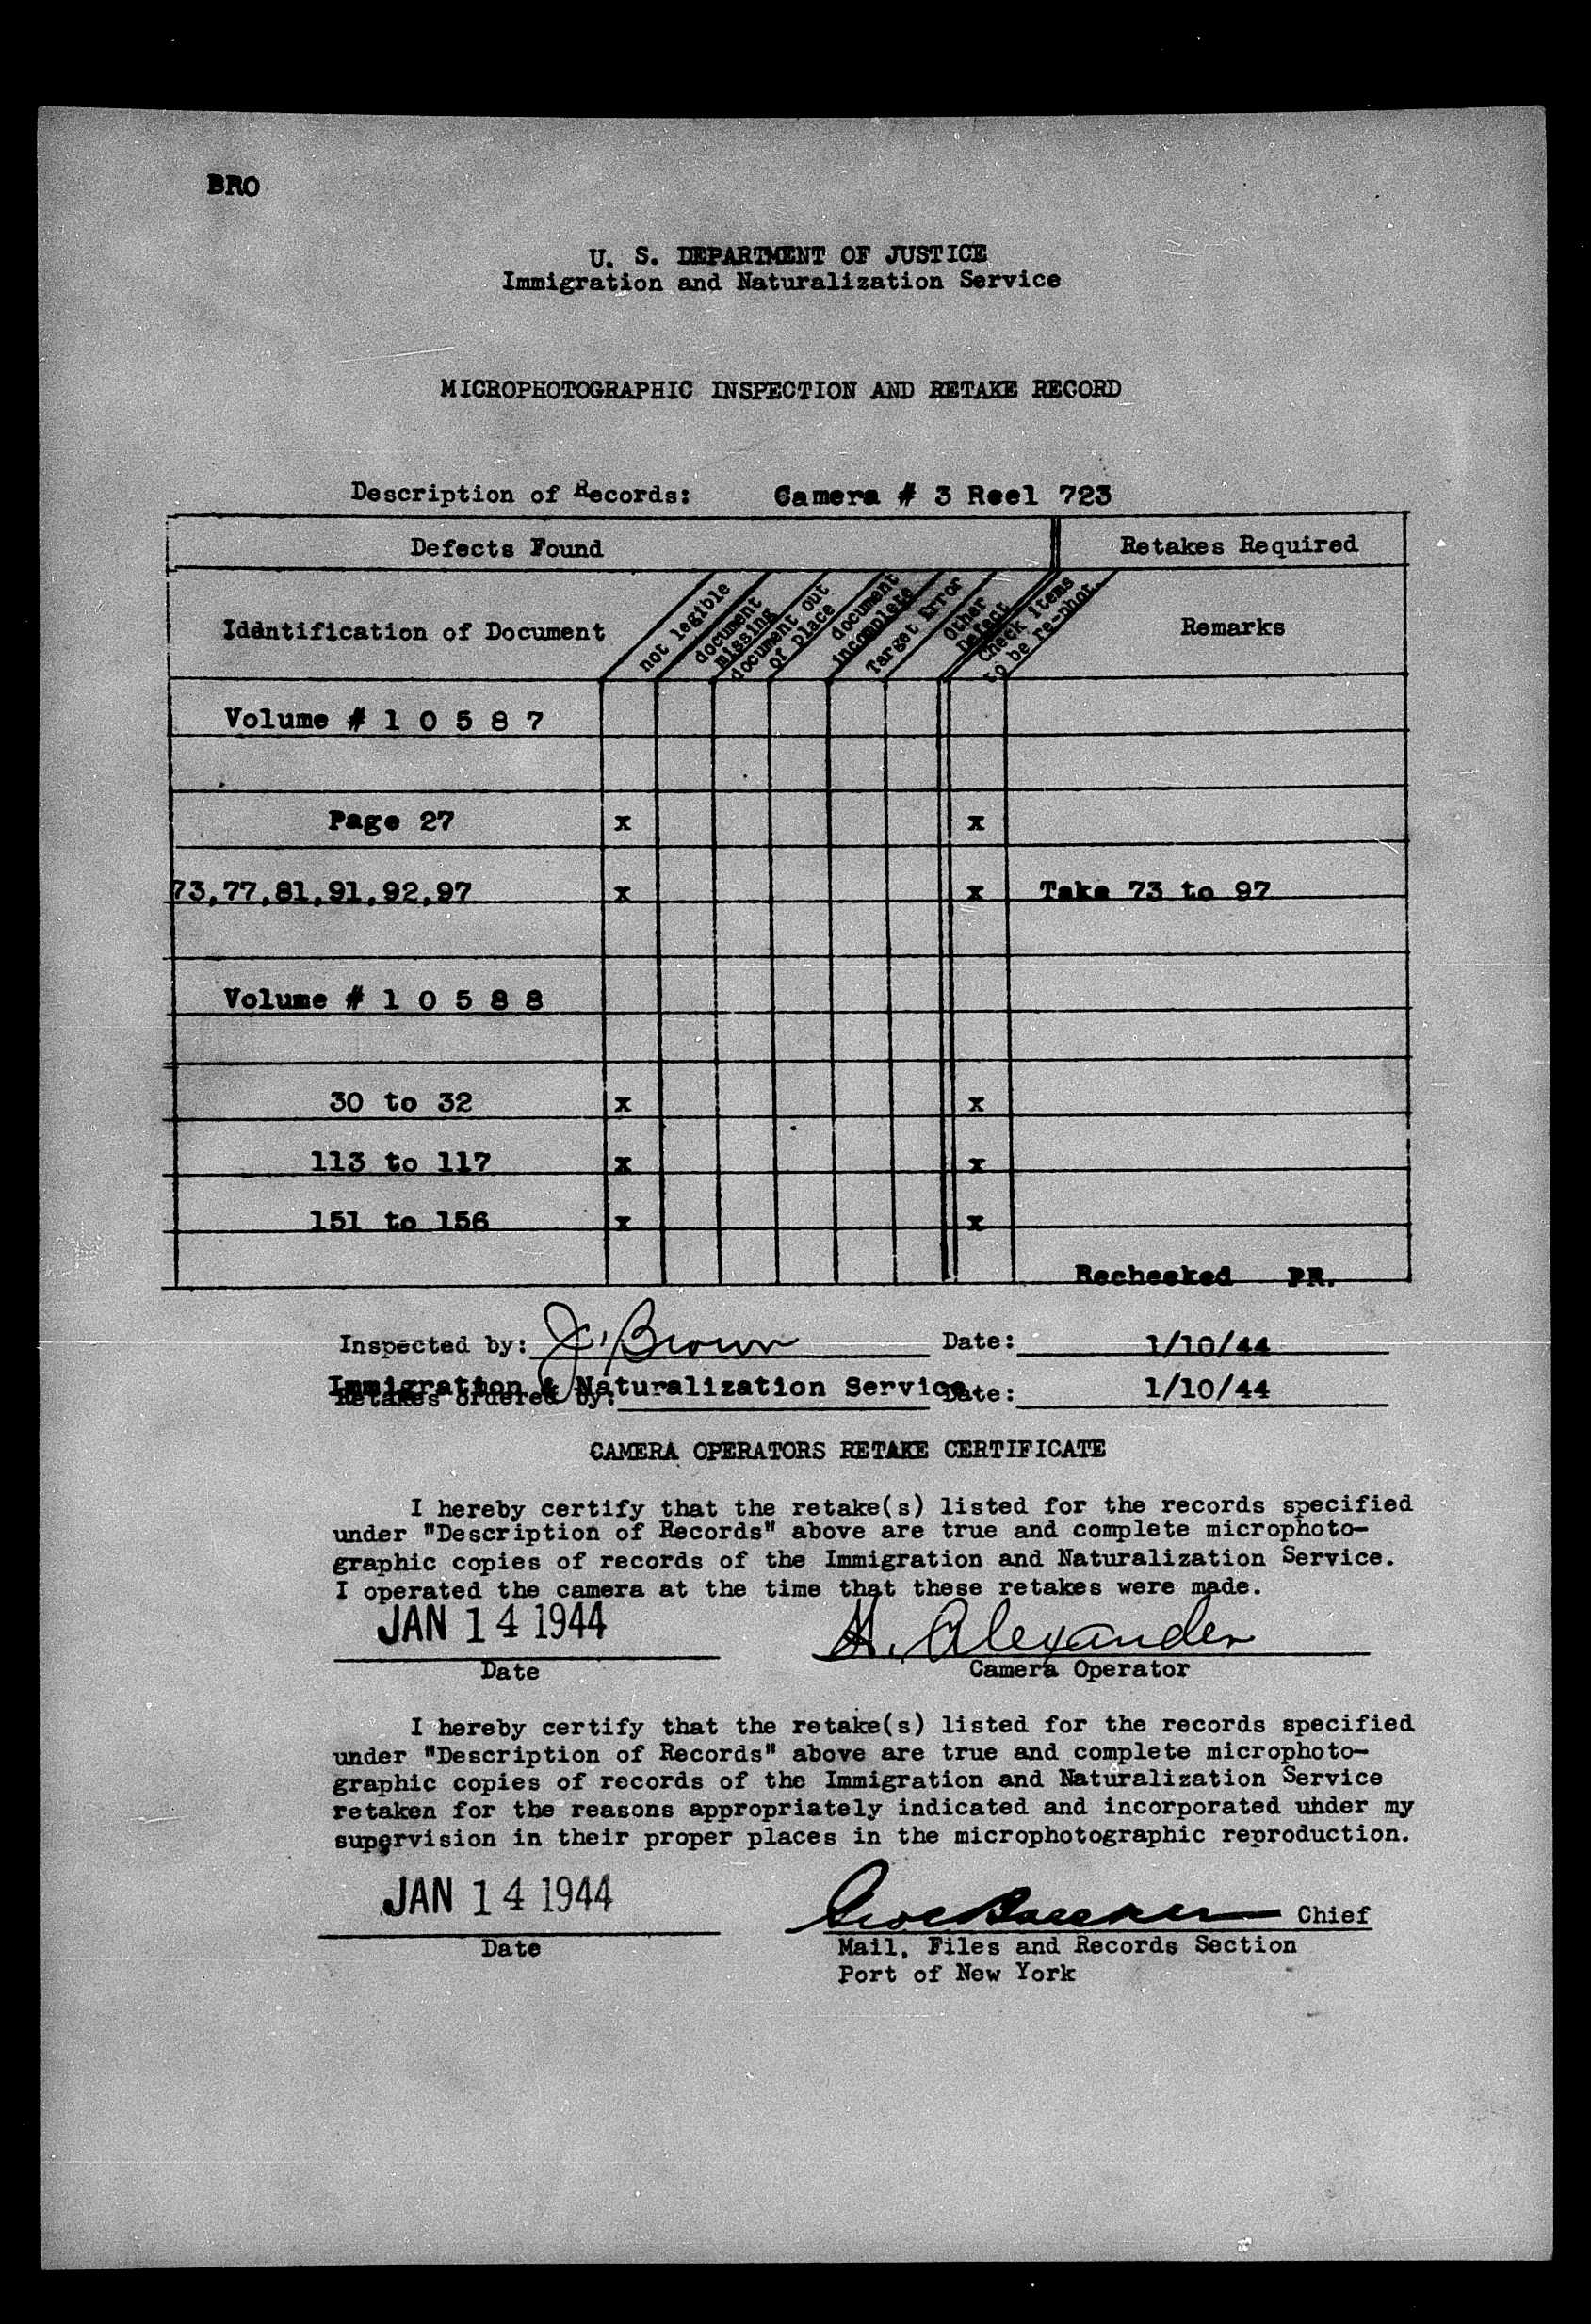 BRO
U. S. DEPARTMENT OF JUSTICE
Immigration and Naturalization Service
MICROPHOTOGRAPHIC INSPECTION AND RETAKE RECORD
Description of Records: Camera # 3 Reel 723
Defects Found Retakes Required
Identification of Document not legible document missing document out of place document incomplete Target Error Other Defect Check items to be re-phot. Remarks
Volume # 1 0 5 8 7
Page 27 x x
73,77,81,91,92,97 x x Take 73 to 97
Volume # 1 0 5 8 8
30 to 32 x x
113 to 117 x x
151 to 156 x x
Rechecked PR.
Inspected by: J. Brown Date: 1/10/44
Immigration & Naturalization Service
Retakes ordered by: Date: 1/10/44
CAMERA OPERATORS RETAKE CERTIFICATE
I hereby certify that the retake(s) listed for the records specified
under "Description of Records" above are true and complete microphoto-
graphic copies of records of the Immigration and Naturalization Service.
I operated the camera at the time that these retakes were made.
JAN 14 1944 H. Alexander
Date Camera Operator
I hereby certify that the retake(s) listed for the records specified
under "Description of Records" above are true and complete microphoto-
graphic copies of records of the Immigration and Naturalization Service
retaken for the reasons appropriately indicated and incorporated under my
supervision in their proper places in the microphotographic reproduction.
JAN 14 1944 Chief
Date Mail, Files and Records Section
Port of New York